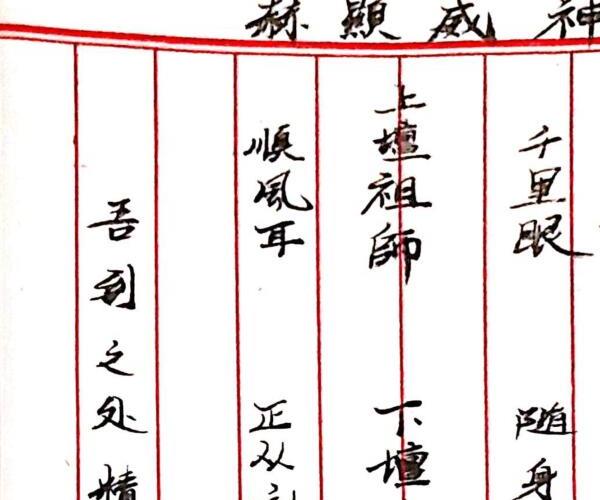 神威顯赫
千里眼 随身
上壇祖師 下壇
順風耳 正从
吾到之处精